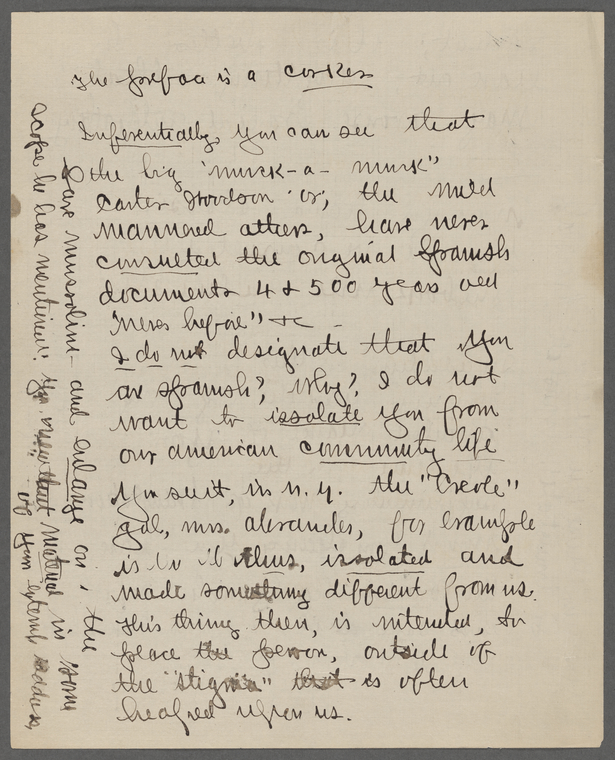 The preface is a corker
Inferentially, you can see that
the big "muck-a-muck"
Carter Woodson or, the mild
mannered others, have never
consulted the original Spanish
documents 4 & 500 years old
"never before" etc —
I do not designate that you
are Spanish? Why? I do not
want to issolate you from
our american community life
You suit, in N.Y. the "Creole"
gal, Mrs. Alexander, for example
is thus, issolated and
made something different from us.
This thing then, is intended, to
place the person, outside of
the "stigma" that is often
heaped upon us.
are mussolini- and enlarge on, the
scope he has mentioned. You that material in some
of your extempt address,